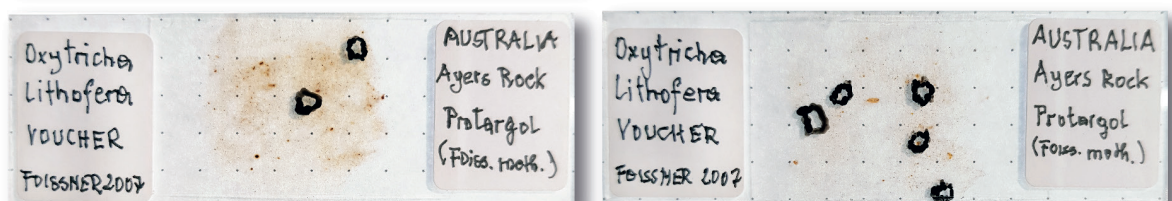 Oxytricha
Lithofera
VOUCHER
FOISSNER 2007
AUSTRALIA
Ayers Rock
Protargol
(Foiss. meth.)
Oxytricha
Lithofera
VOUCHER
FOISSNER 2007
AUSTRALIA
Ayers Rock
Protargol
(Foiss. meth.)